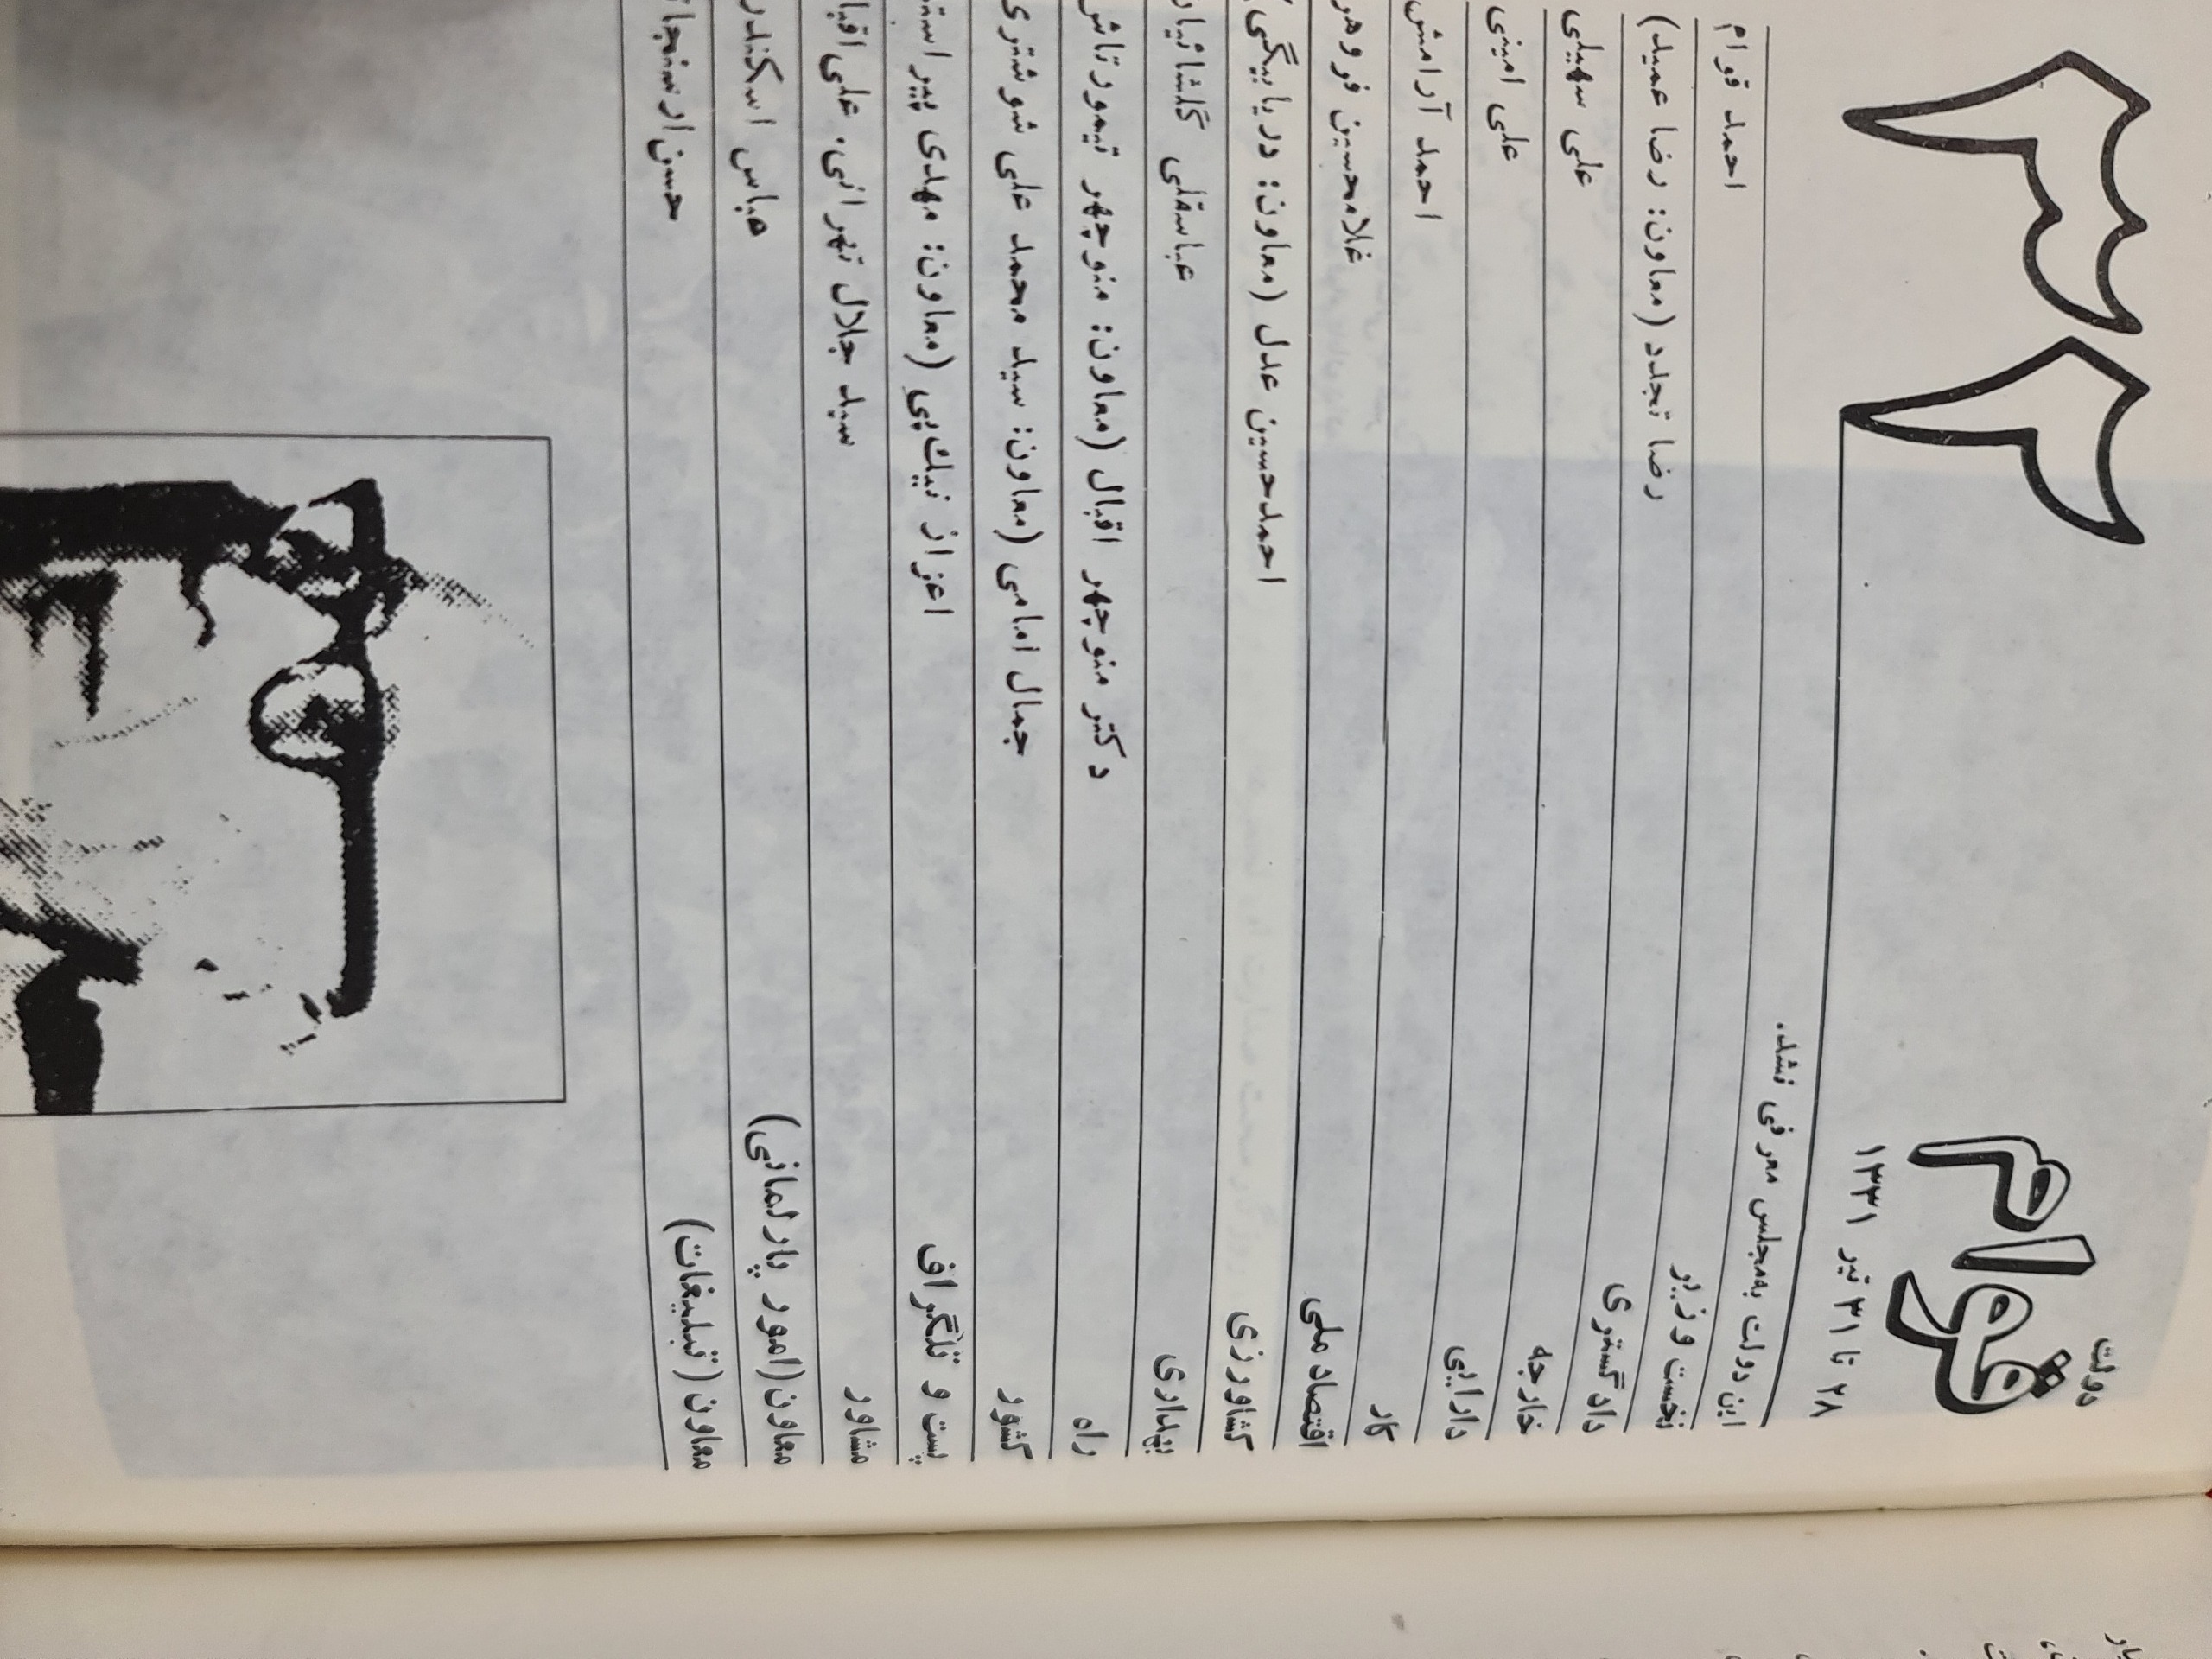 دولت
قوام ۳۲
۲۸ تا ۳۱ تیر ۱۳۳۱
این دولت به‌مجلس معرفی نشد.
نخست وزیر احمد قوام
دادگستری رضا تجدد (معاون: رضا عمید)
خارجه علی سهیلی
دارایی علی امینی
کار احمد آرامش
اقتصاد ملی غلامحسین فروهر
کشاورزی احمدحسین عدل (معاون: دریابیگی
بهداری عباسقلی
راه دکتر منوچهر اقبال (معاون: منوچهر تیمورتاش
کشور جمال امامی (معاون: سید محمد علی شوشتری
پست و تلگراف اعزاز نیك‌پی (معاون: مهدی
مشاور سید جلال تهرانی، علی
معاون(امور پارلمانی) عباس
معاون (تبلیغات) حسن